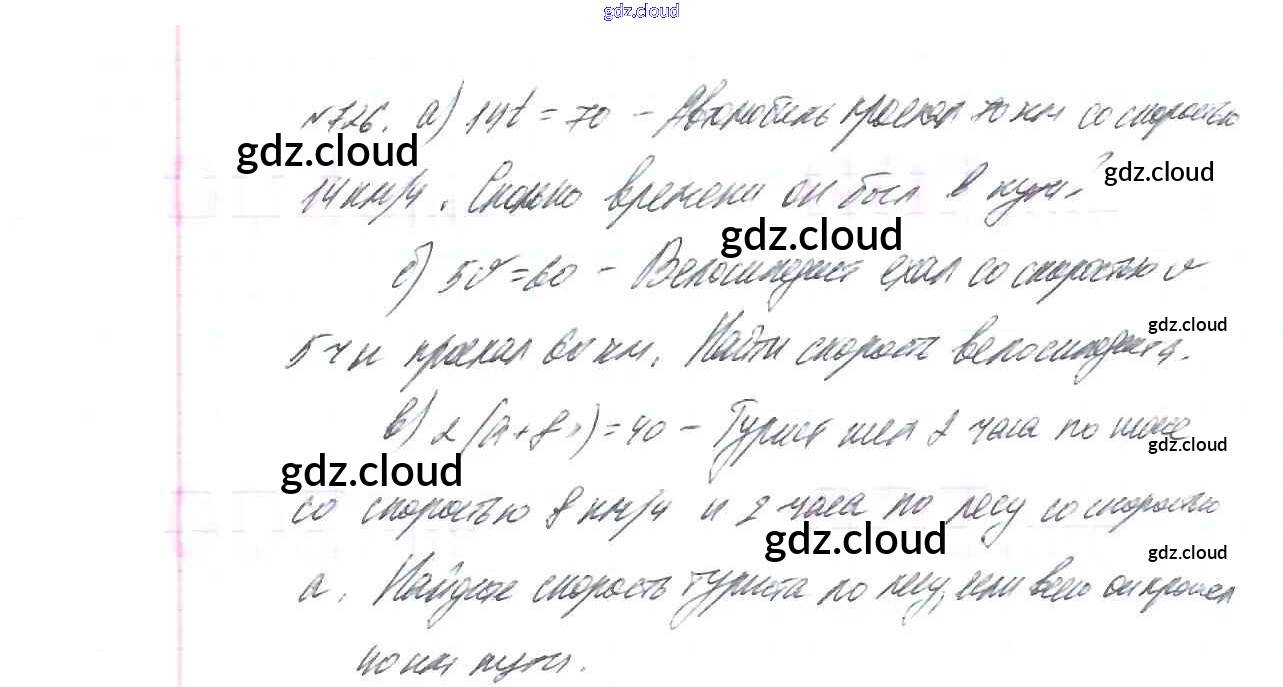 gdz.cloud
№726. а) 14t = 70 – Автомобиль проехал 70 км со скоростью
gdz.cloud
14 км/ч. Сколько времени он был в пути?
gdz.cloud
gdz.cloud
б) 5v = 60 – Велосипедист ехал со скоростью v
gdz.cloud
5 ч и проехал 60 км. Найти скорость велосипедиста.
в) 2(a+8) = 40 – Турист шел 2 часа по шоссе
gdz.cloud
gdz.cloud
со скоростью 8 км/ч и 2 часа по лесу со скоростью
gdz.cloud
gdz.cloud
а. Найдите скорость туриста по лесу, если всего он прошел
40 км пути.